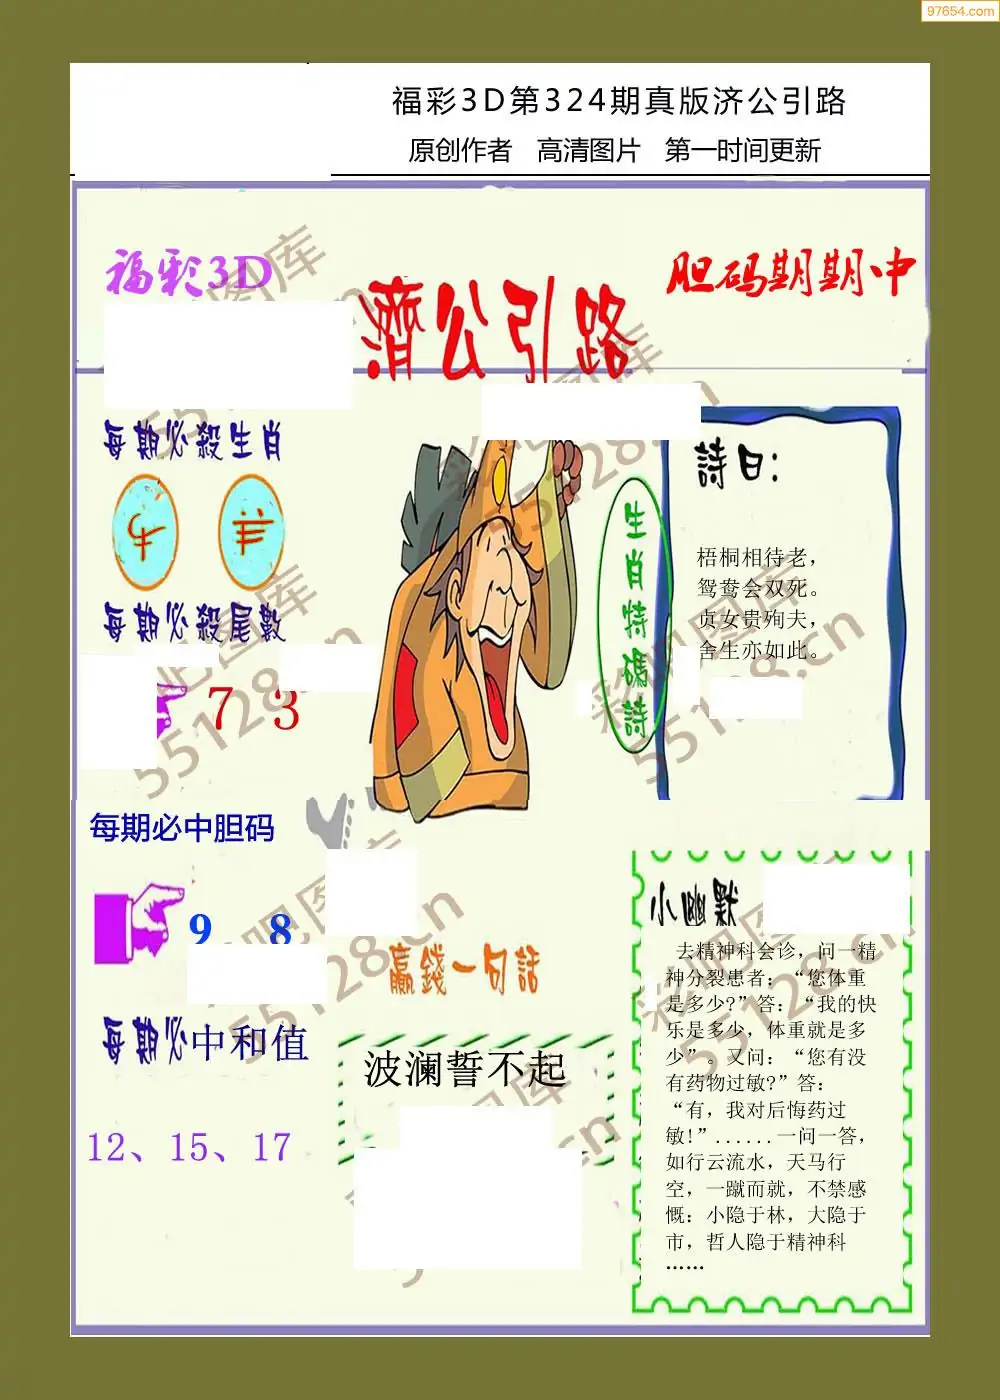 97654.com
福彩3D第324期真版济公引路
原创作者 高清图片 第一时间更新
福彩3D
濟公引路
胆码期期中
每期必殺生肖
牛 羊
每期必殺尾數
7 3
生肖特碼詩
詩曰：
梧桐相待老，
鸳鸯会双死。
贞女贵殉夫，
舍生亦如此。
每期必中胆码
9 8
每期必中和值
12、15、17
贏錢一句話
波澜誓不起
小幽默
去精神科会诊，问一精
神分裂患者：“您体重
是多少?”答：“我的快
乐是多少，体重就是多
少”。又问：“您有没
有药物过敏?”答：
“有，我对后悔药过
敏!”......一问一答，
如行云流水，天马行
空，一蹴而就，不禁感
慨：小隐于林，大隐于
市，哲人隐于精神科
……
彩吧图库
55128.cn